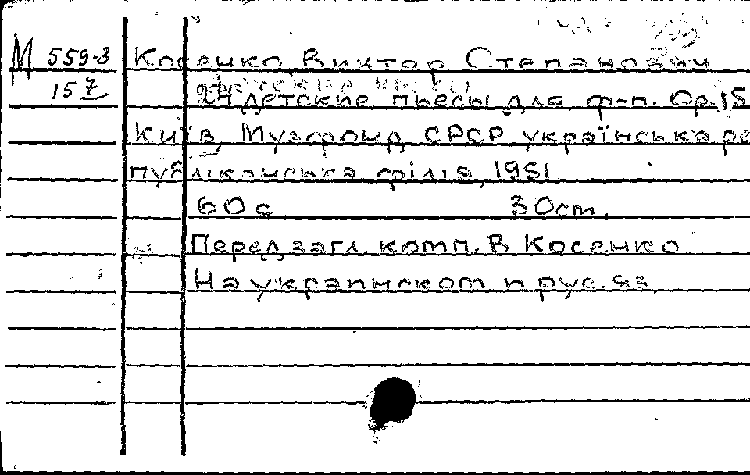 М 559-3 Косенко, Виктор Степанович
15 7 24 детские пьесы для ф-п. Ор.15
Київ, Музфонд СРСР українська ре
публіканська філія, 1951
60 с. 30 cm.
Перед загл. комп. В Косенко
На украинском и рус. яз.